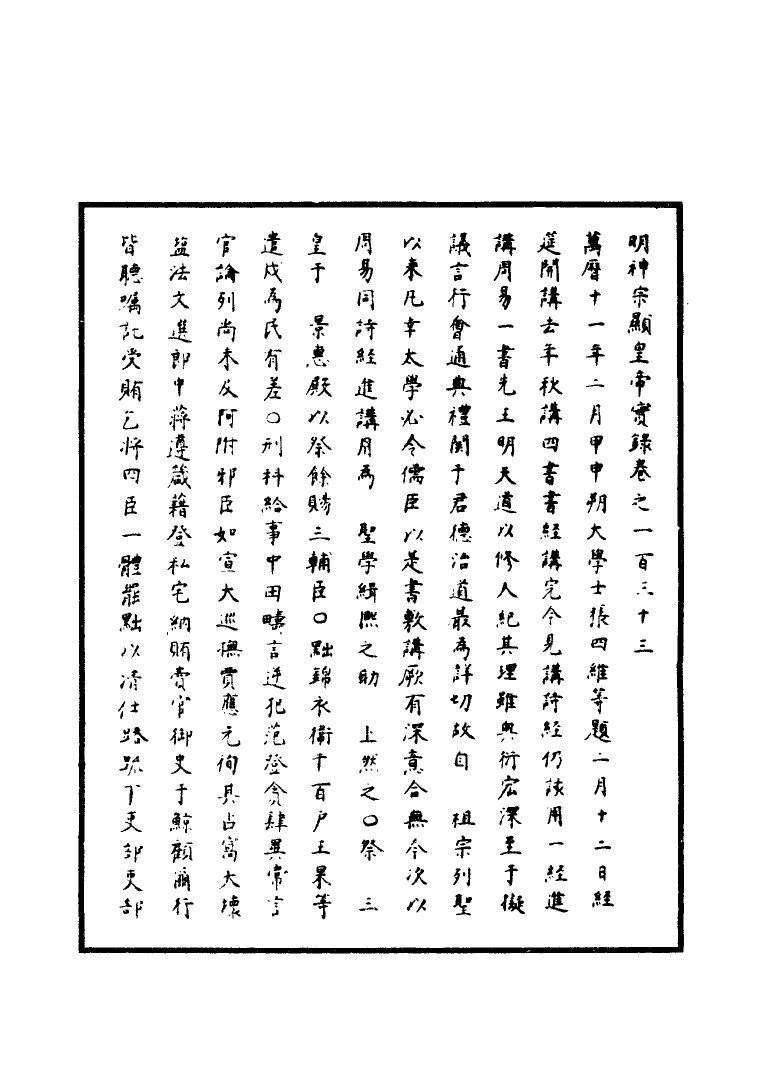 明神宗顯皇帝實錄卷之一百三十三
萬曆十一年二月甲申朔大學士張四維等題二月十二日經
筵開講去年秋講四書書經講完今見講詩經仍該用一經進
講周易一書先王明天道以修人紀其理雖奧衍宏深至于儗
議言行會通典禮關于君德治道最為詳切故自 祖宗列聖
以來凡幸太學必令儒臣以是書敷講厥有深意合無今次以
周易同詩經進講用為 聖學緝熙之助 上然之○祭 三
皇于 景惠殿以祭餘賜三輔臣○黜錦衣衛千百戶王果等
遣戍為民有差○刑科給事中田疇言逆犯范登貪肆異常言
官論列尚未及阿附邪臣如宣大巡撫賈應元徇其占窩大壞
鹽法文選郎中蔣遵箴藉登私宅納賄賣官御史于鯨顧爾行
皆聽囑託受賄乞將四臣一體罷黜以清仕路疏下吏部吏部